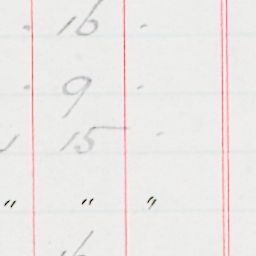 . 16 .
. 9 .
15 .
" " "
16